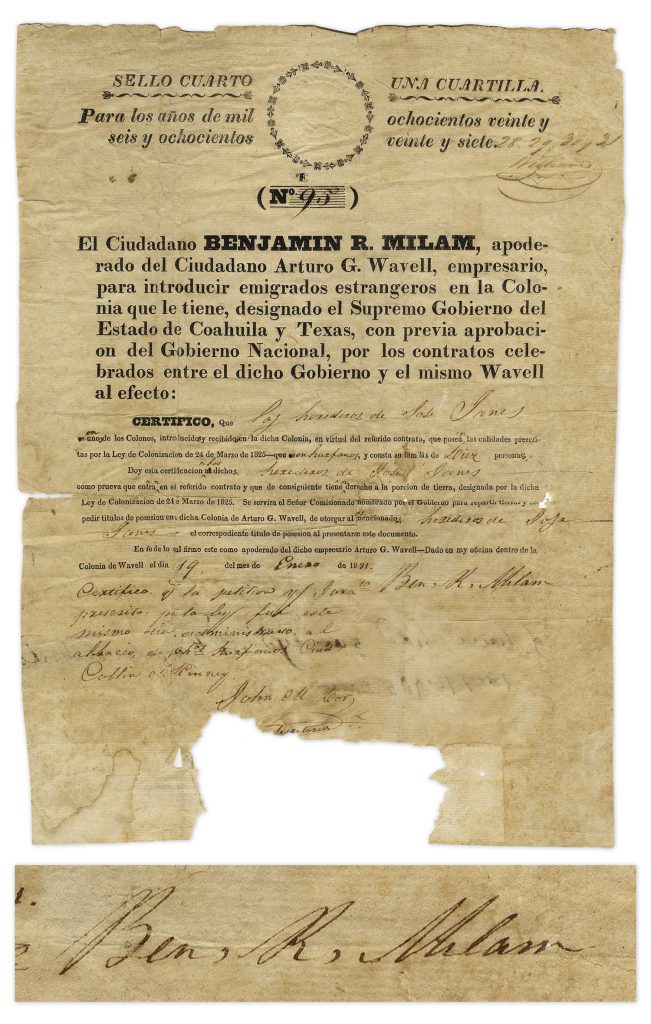 SELLO CUARTO UNA CUARTILLA.
Para los años de mil ochocientos veinte y
seis y ochocientos veinte y siete. 28. 29. 30, 31
E
(Nº. 95)
El Ciudadano BENJAMIN R. MILAM, apode-
rado del Ciudadano Arturo G. Wavell, empresario,
para introducir emigrados estrangeros en la Colo-
nia que le tiene, designado el Supremo Gobierno del
Estado de Coahuila y Texas, con previa aprobaci-
on del Gobierno Nacional, por los contratos cele-
brados entre el dicho Gobierno y el mismo Wavell
al efecto:
CERTIFICO, Que Los herederos de Jose Janes
de los Colonos, introducidos y recibidos en la dicha Colonia, en virtud del referido contrato, que posea las calidades prescri-
tas por la Ley de Colonizacion de 24 de Marzo de 1825—que son huerfanos, y consta su familia de Diez personas.
Doy esta certificacion a los dichos herederos de Jose Janes
como prueva que entra en el referido contrato y que de consiguiente tiene derecho a la porcion de tierra, designada por la dicha
Ley de Colonizacion de 24 de Marzo de 1825. Se servira el Señor Comisionado nombrado por el Gobierno para repartir tierras y es-
pedir titulos de posesion en dicha Colonia de Arturo G. Wavell, de otorgar al mencionado herederos de Jose
Janes el correspondiente titulo de posesion al presentarse este documento.
En fe de lo cual firmo este como apoderado del dicho empresario Arturo G. Wavell—Dado en my oficina dentro de la
Colonia de Wavell el dia 19. del mes de Enero de 1831.
Ben, R, Milam
Certifico q la petition y
prescrito p la ley fue este
mismo dia, administrado, al
albacea, de huerfanos
Collin McKinney.
John M
Secretario
Ben, R, Milam